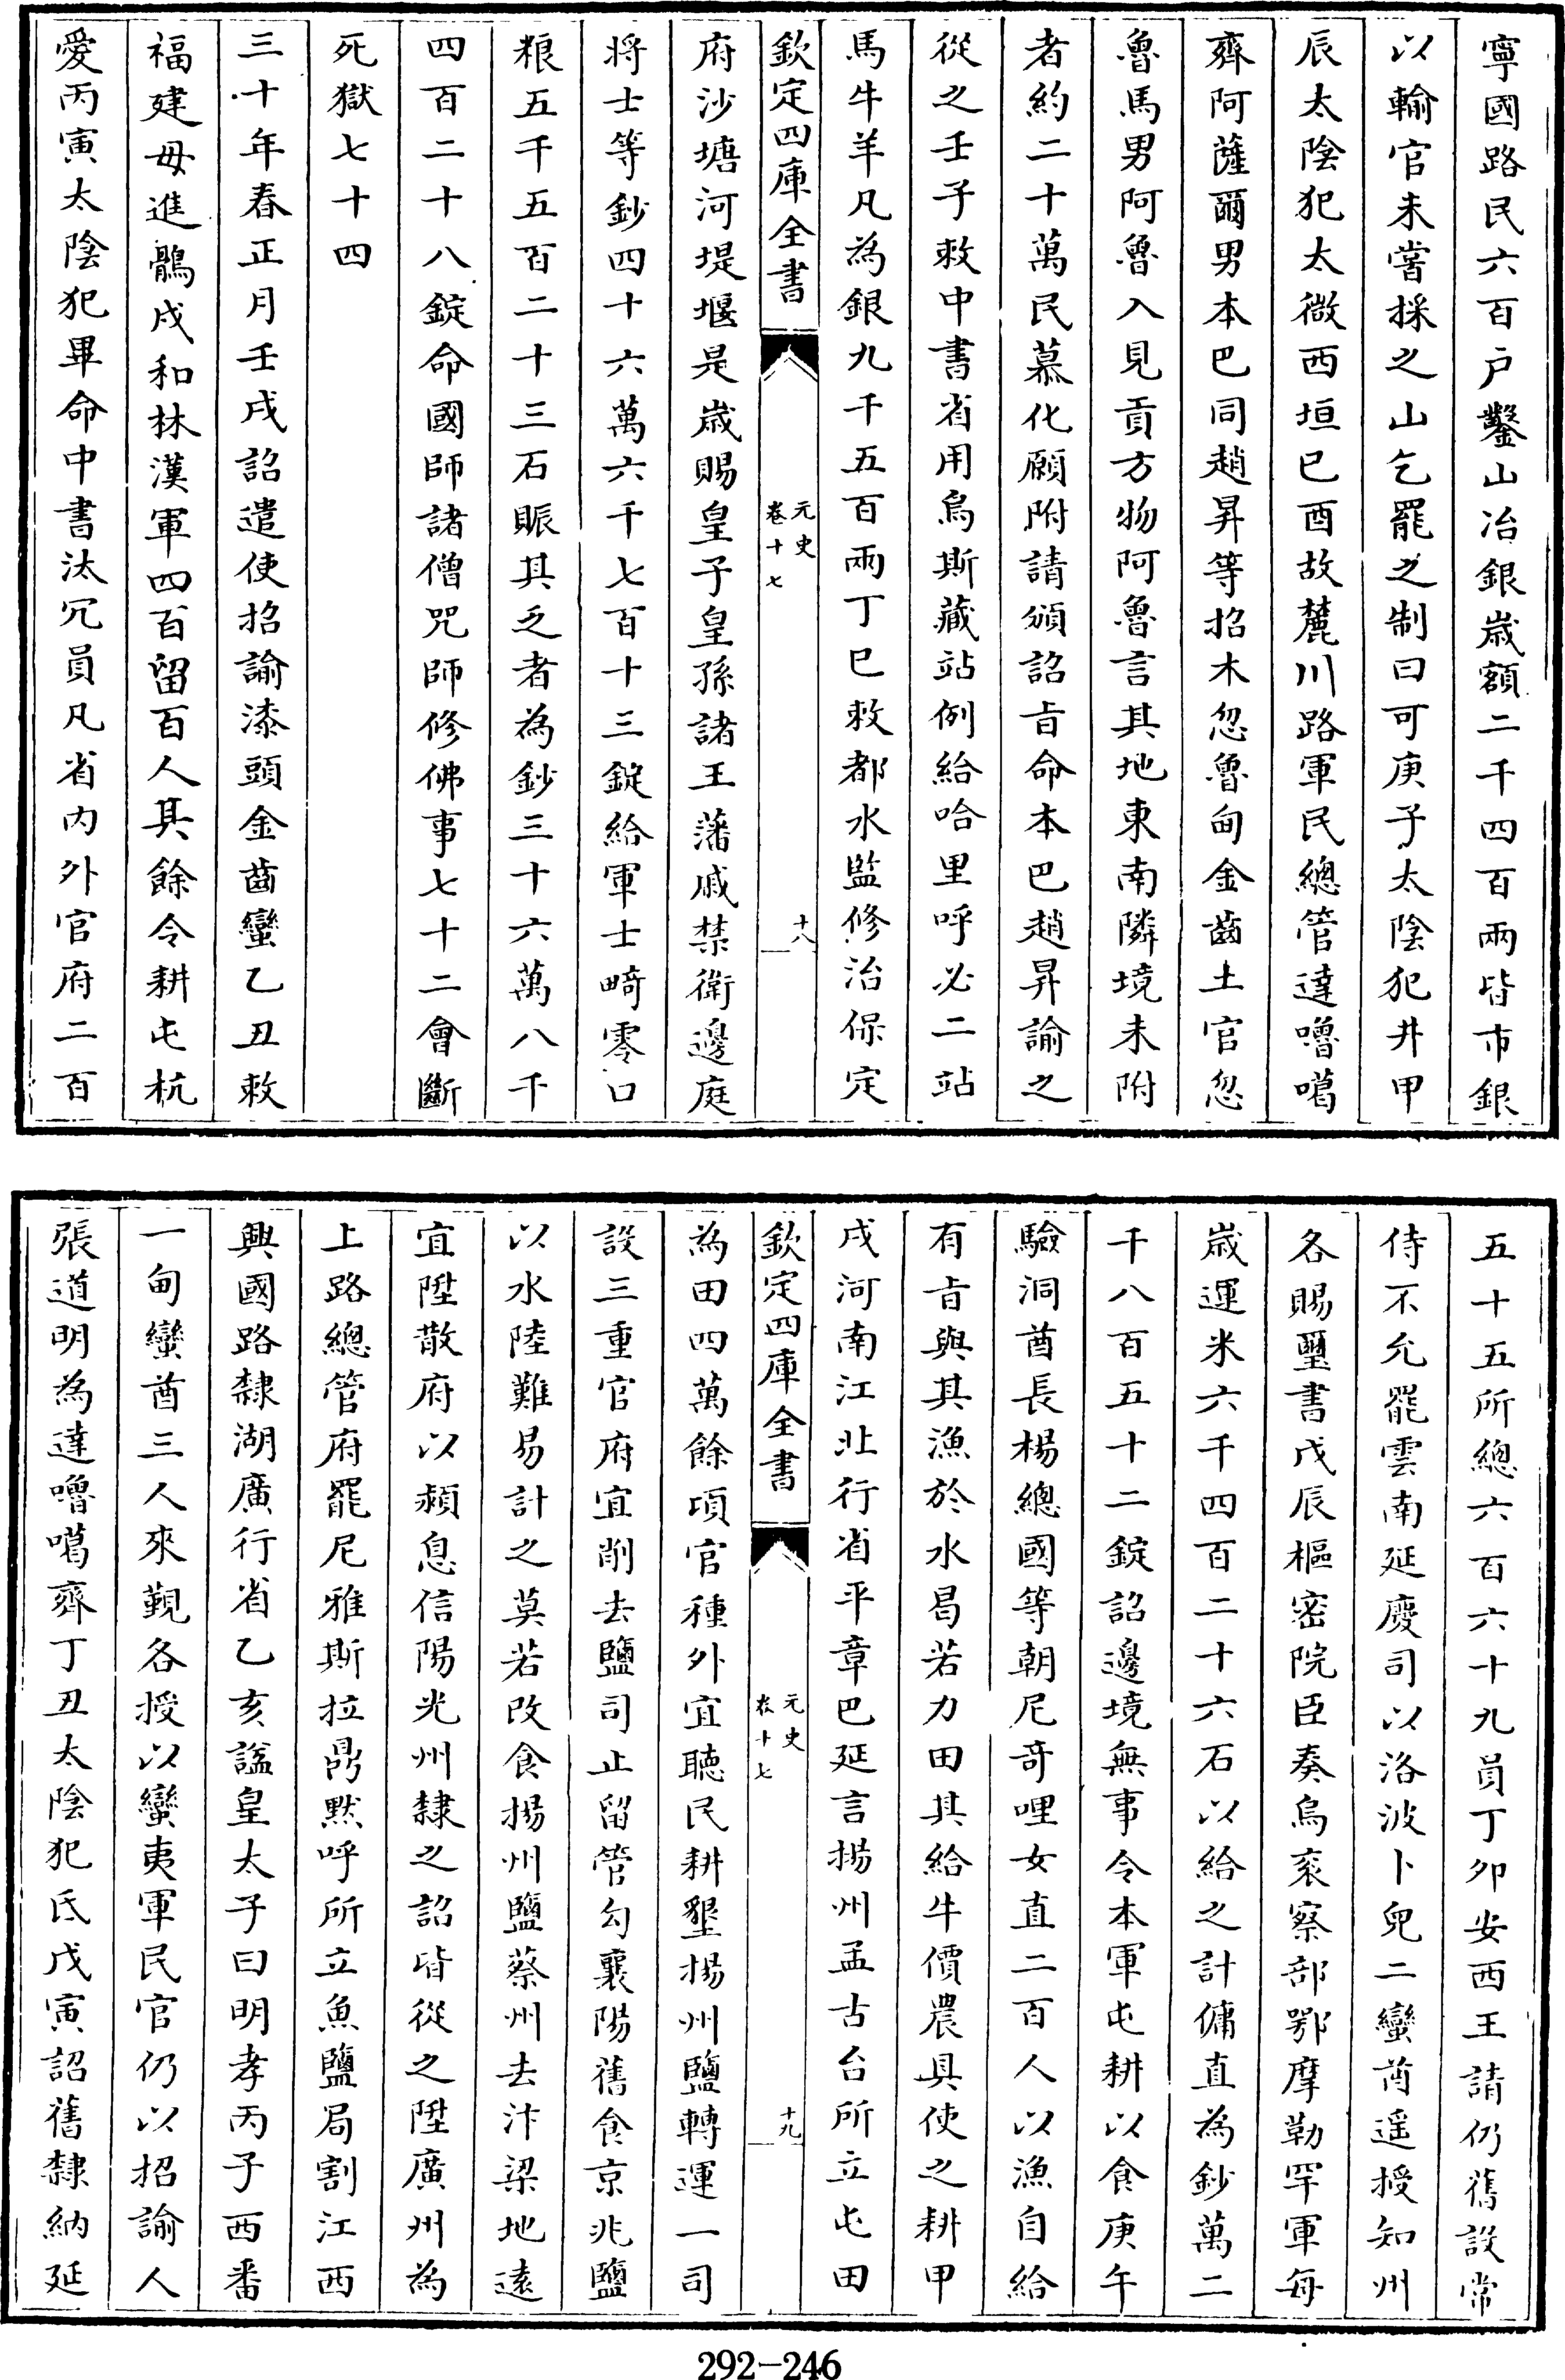 寧國路民六百户鑿山冶銀歲額二千四百兩皆市銀
以輸官未嘗採之山乞罷之制曰可庚子太陰犯井甲
辰太陰犯太微西垣己酉故麓川路軍民總管達嚕噶
齊阿薩爾男本巴同趙昇等招木忽魯甸金齒土官忽
魯馬男阿魯入見貢方物阿魯言其地東南隣境未附
者約二十萬民慕化願附請頒詔旨命本巴趙昇諭之
從之壬子敕中書省用烏斯藏站例給哈里呼必二站
馬牛羊凡為銀九千五百兩丁巳敕都水監修治保定
欽定四庫全書
元史
卷十七
十八
府沙塘河堤堰是歲賜皇子皇孫諸王藩戚禁衛邊庭
將士等鈔四十六萬六千七百十三錠給軍士畸零口
粮五千五百二十三石賑其乏者為鈔三十六萬八千
四百二十八錠命國師諸僧咒師修佛事七十二會斷
死獄七十四
三十年春正月壬戌詔遣使招諭漆頭金齒蠻乙丑敕
福建毋進鶻戍和林漢軍四百留百人其餘令耕屯杭
愛丙寅太陰犯畢命中書汰冗員凡省内外官府二百
五十五所總六百六十九員丁卯安西王請仍舊設常
侍不允罷雲南延慶司以洛波卜兒二蠻酋遥授知州
各賜璽書戊辰樞密院臣奏烏衮察部鄂摩勒罕軍每
歲運米六千四百二十六石以給之計傭直為鈔萬二
千八百五十二錠詔邊境無事令本軍屯耕以食庚午
驗洞酋長楊總國等朝尼奇哩女直二百人以漁自給
有旨與其漁於水曷若力田其給牛價農具使之耕甲
戌河南江北行省平章巴延言揚州孟古台所立屯田
欽定四庫全書
元史
卷十七
十九
為田四萬餘頃官種外宜聽民耕墾揚州鹽轉運一司
設三重官府宜削去鹽司止留管勾襄陽舊食京兆鹽
以水陸難易計之莫若改食揚州鹽蔡州去汴梁地遠
宜陞散府以潁息信陽光州隸之詔皆從之陞廣州為
上路總管府罷尼雅斯拉鼎黙呼所立魚鹽局割江西
興國路隸湖廣行省乙亥謚皇太子曰明孝丙子西番
一甸蠻酋三人來覲各授以蠻夷軍民官仍以招諭人
張道明為達嚕噶齊丁丑太陰犯氐戊寅詔舊隸納延
292-246